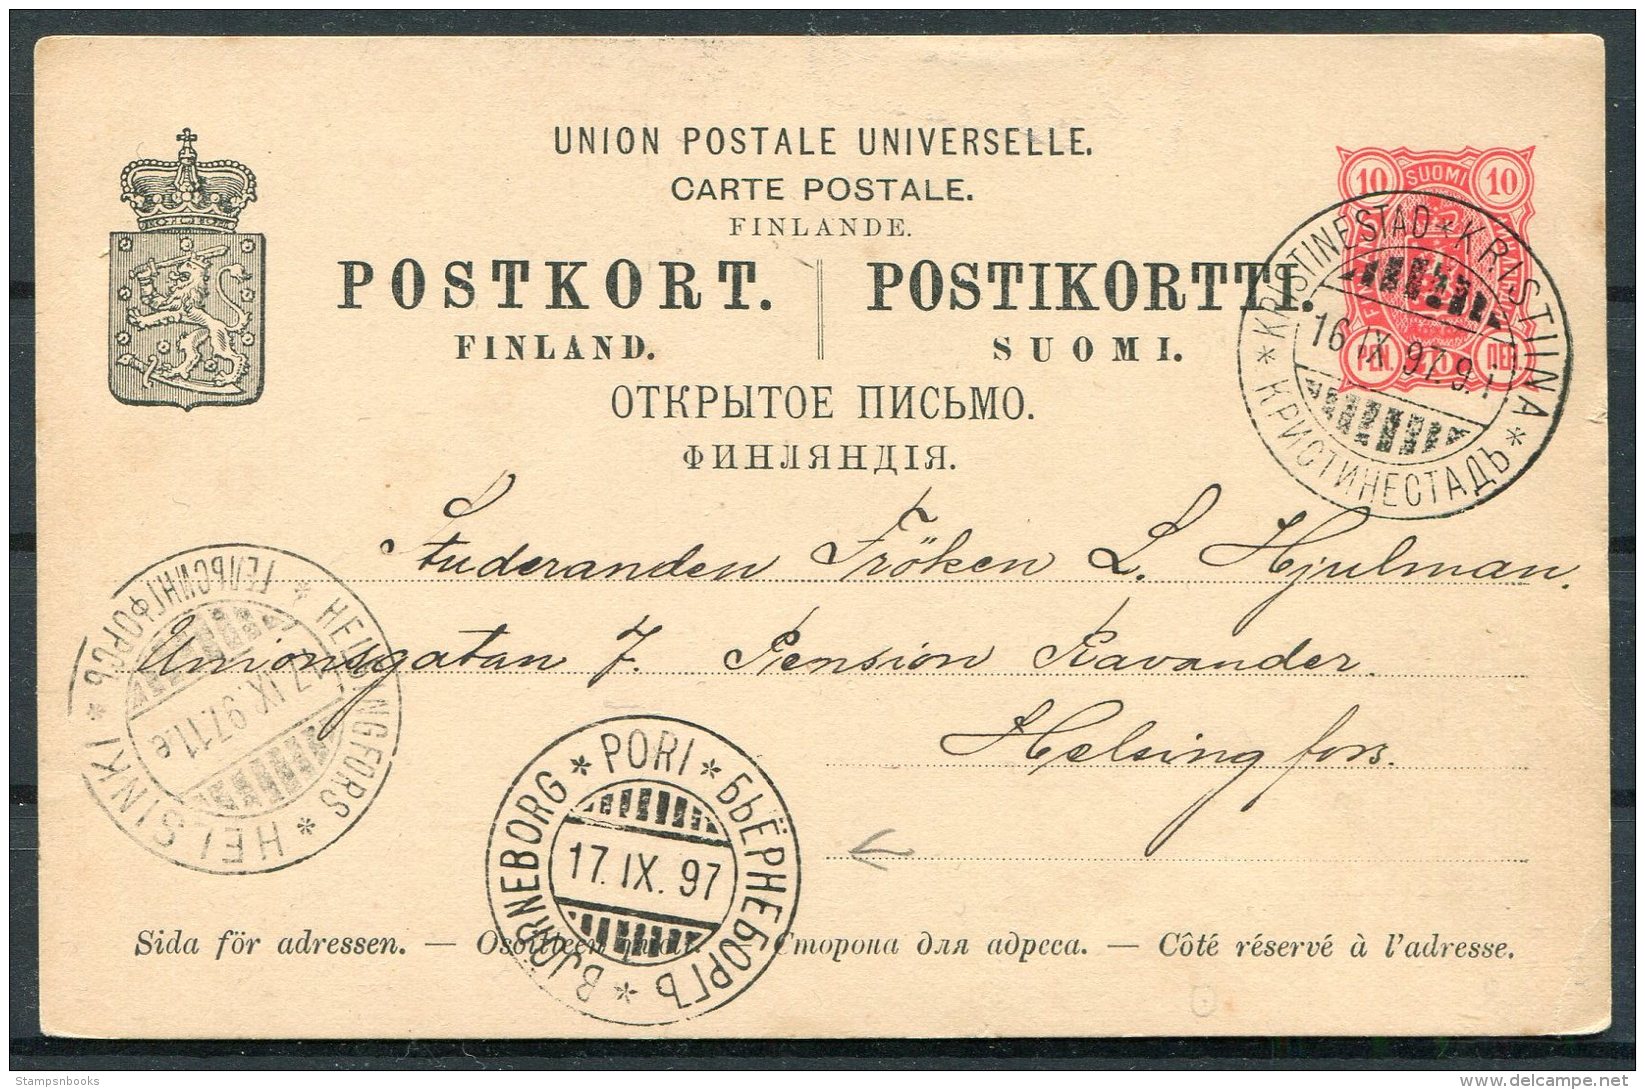 UNION POSTALE UNIVERSELLE.
CARTE POSTALE.
FINLANDE.
POSTKORT. POSTIKORTTI.
FINLAND. SUOMI.
ОТКРЫТОЕ ПИСЬМО.
ФИНЛЯНДІЯ.
10 SUOMI 10
PEN. 10 ПЕН.
KRISTINESTAD * KRISTIINA * КРИСТИНЕСТАДЪ *
16 IX 97. 9 i
Studeranden Fröken L. Hjulman.
Unionsgatan 7. Pension Ravander.
Helsingfors.
HELSINGFORS * HELSINKI * ГЕЛЬСИНГФОРСЪ *
17. IX. 97. 11. e
BJÖRNEBORG * PORI * БЬЁРНЕБОРГЪ *
17. IX. 97
Sida för adressen. — Osoitteen puoli. — Сторона для адреса. — Côté réservé à l'adresse.
Stampsnbooks
delcampe.net